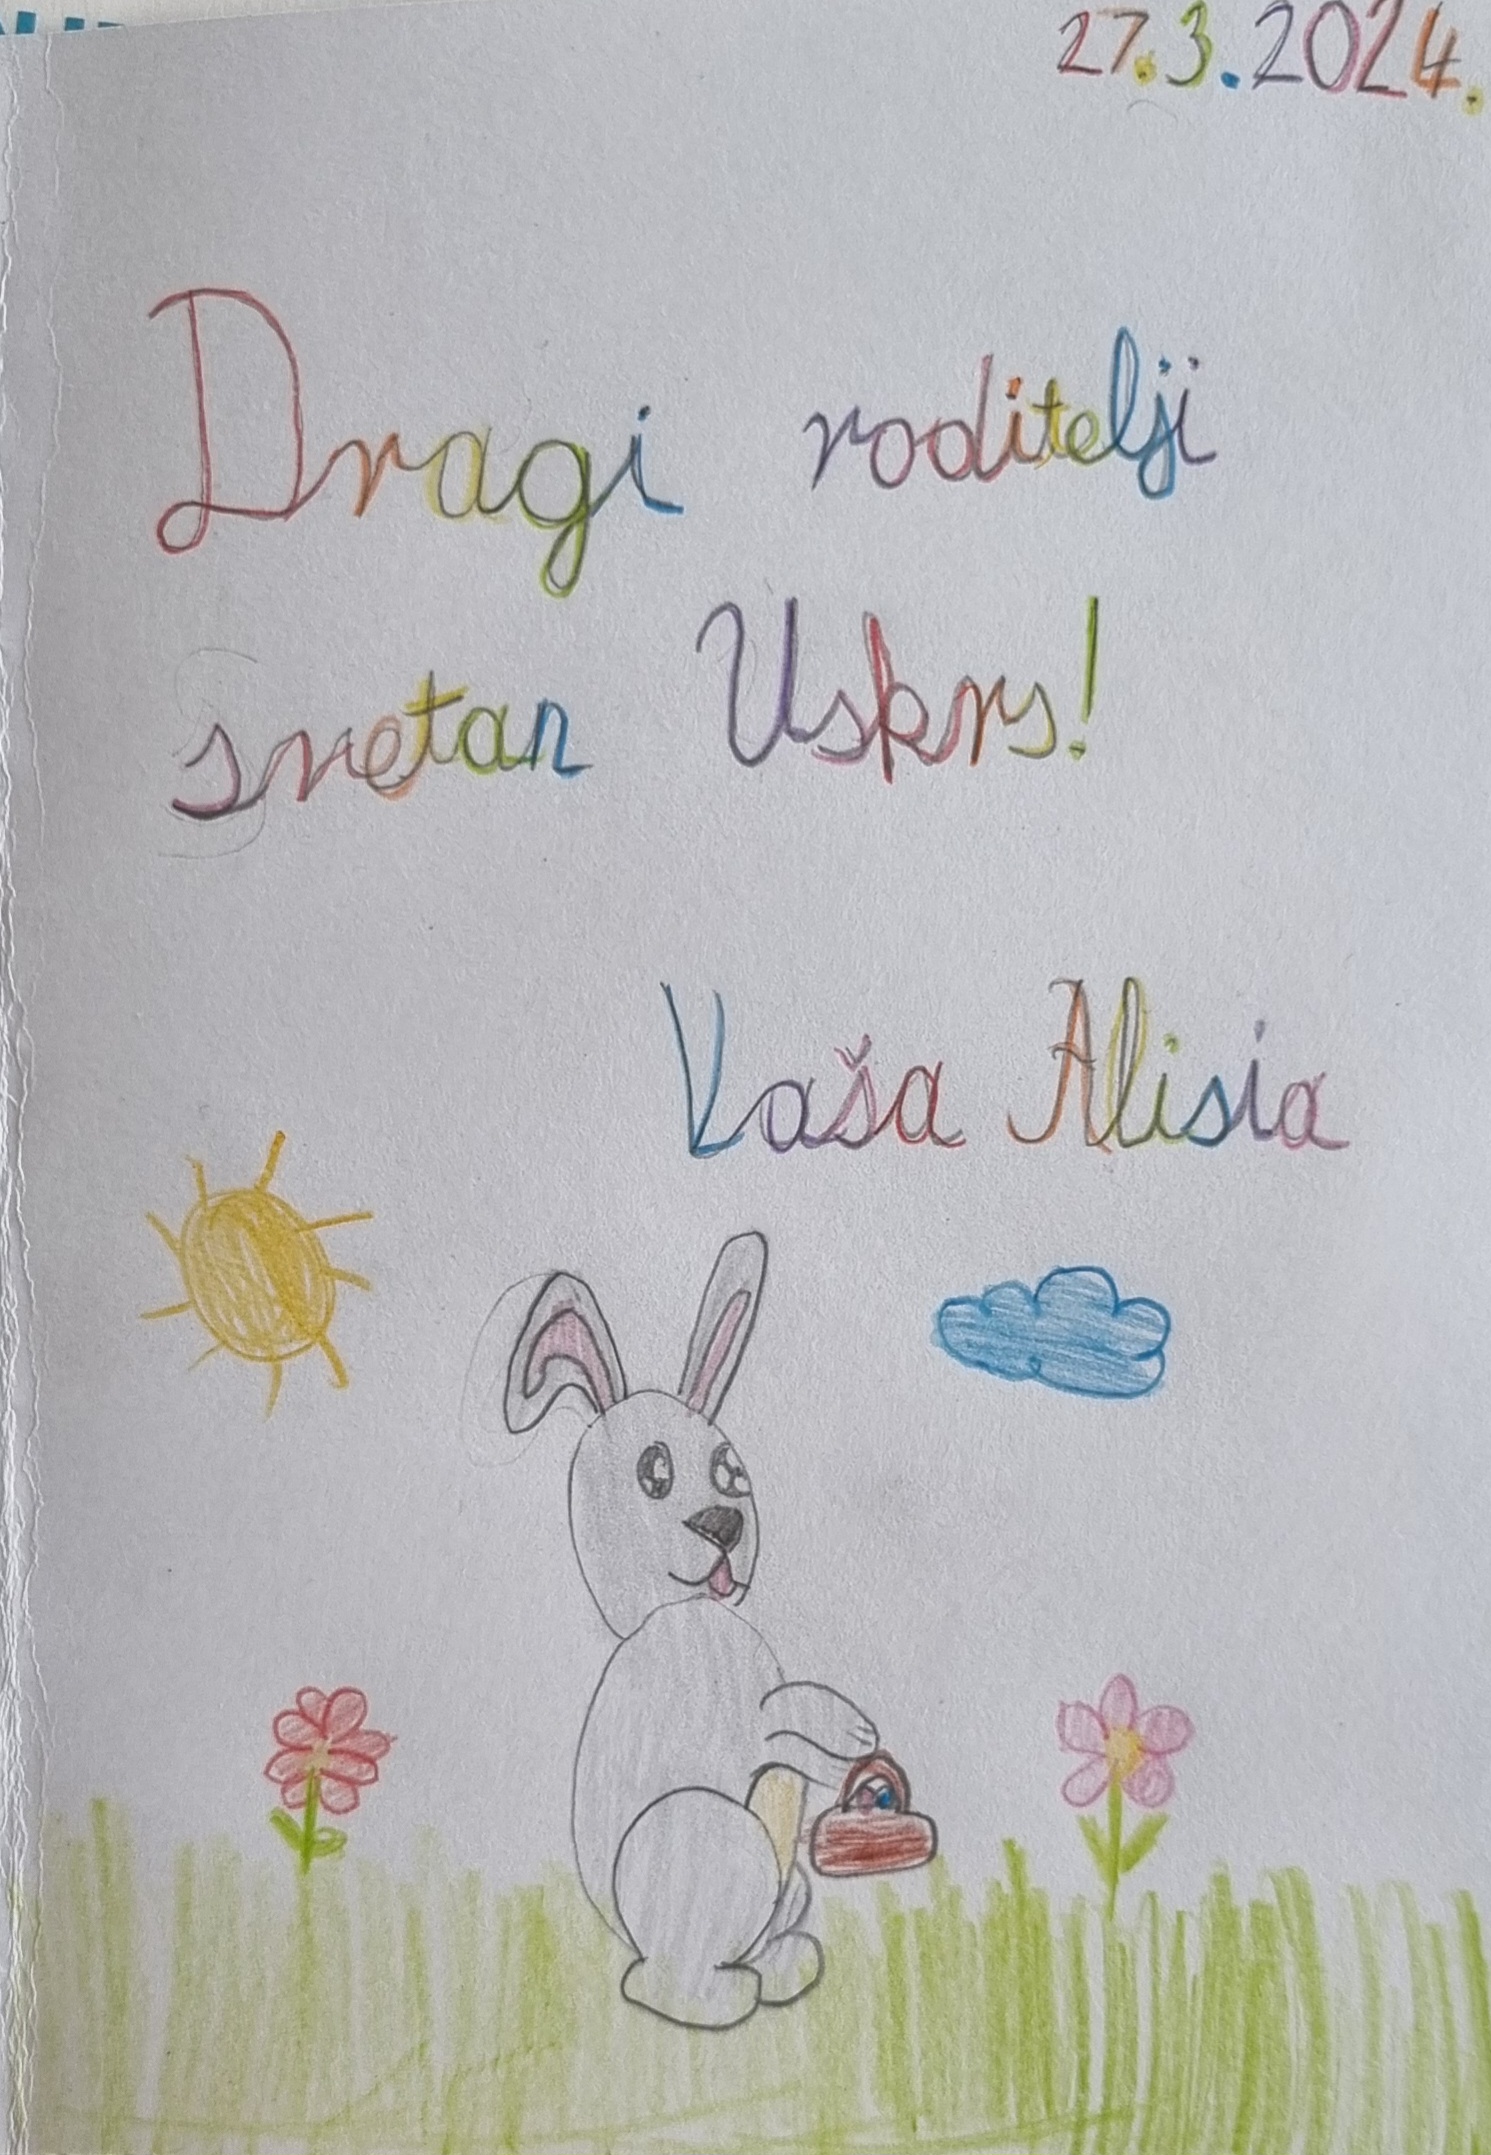 27.3.2024.
Dragi roditelji
sretan Uskrs!
Vaša Alisia